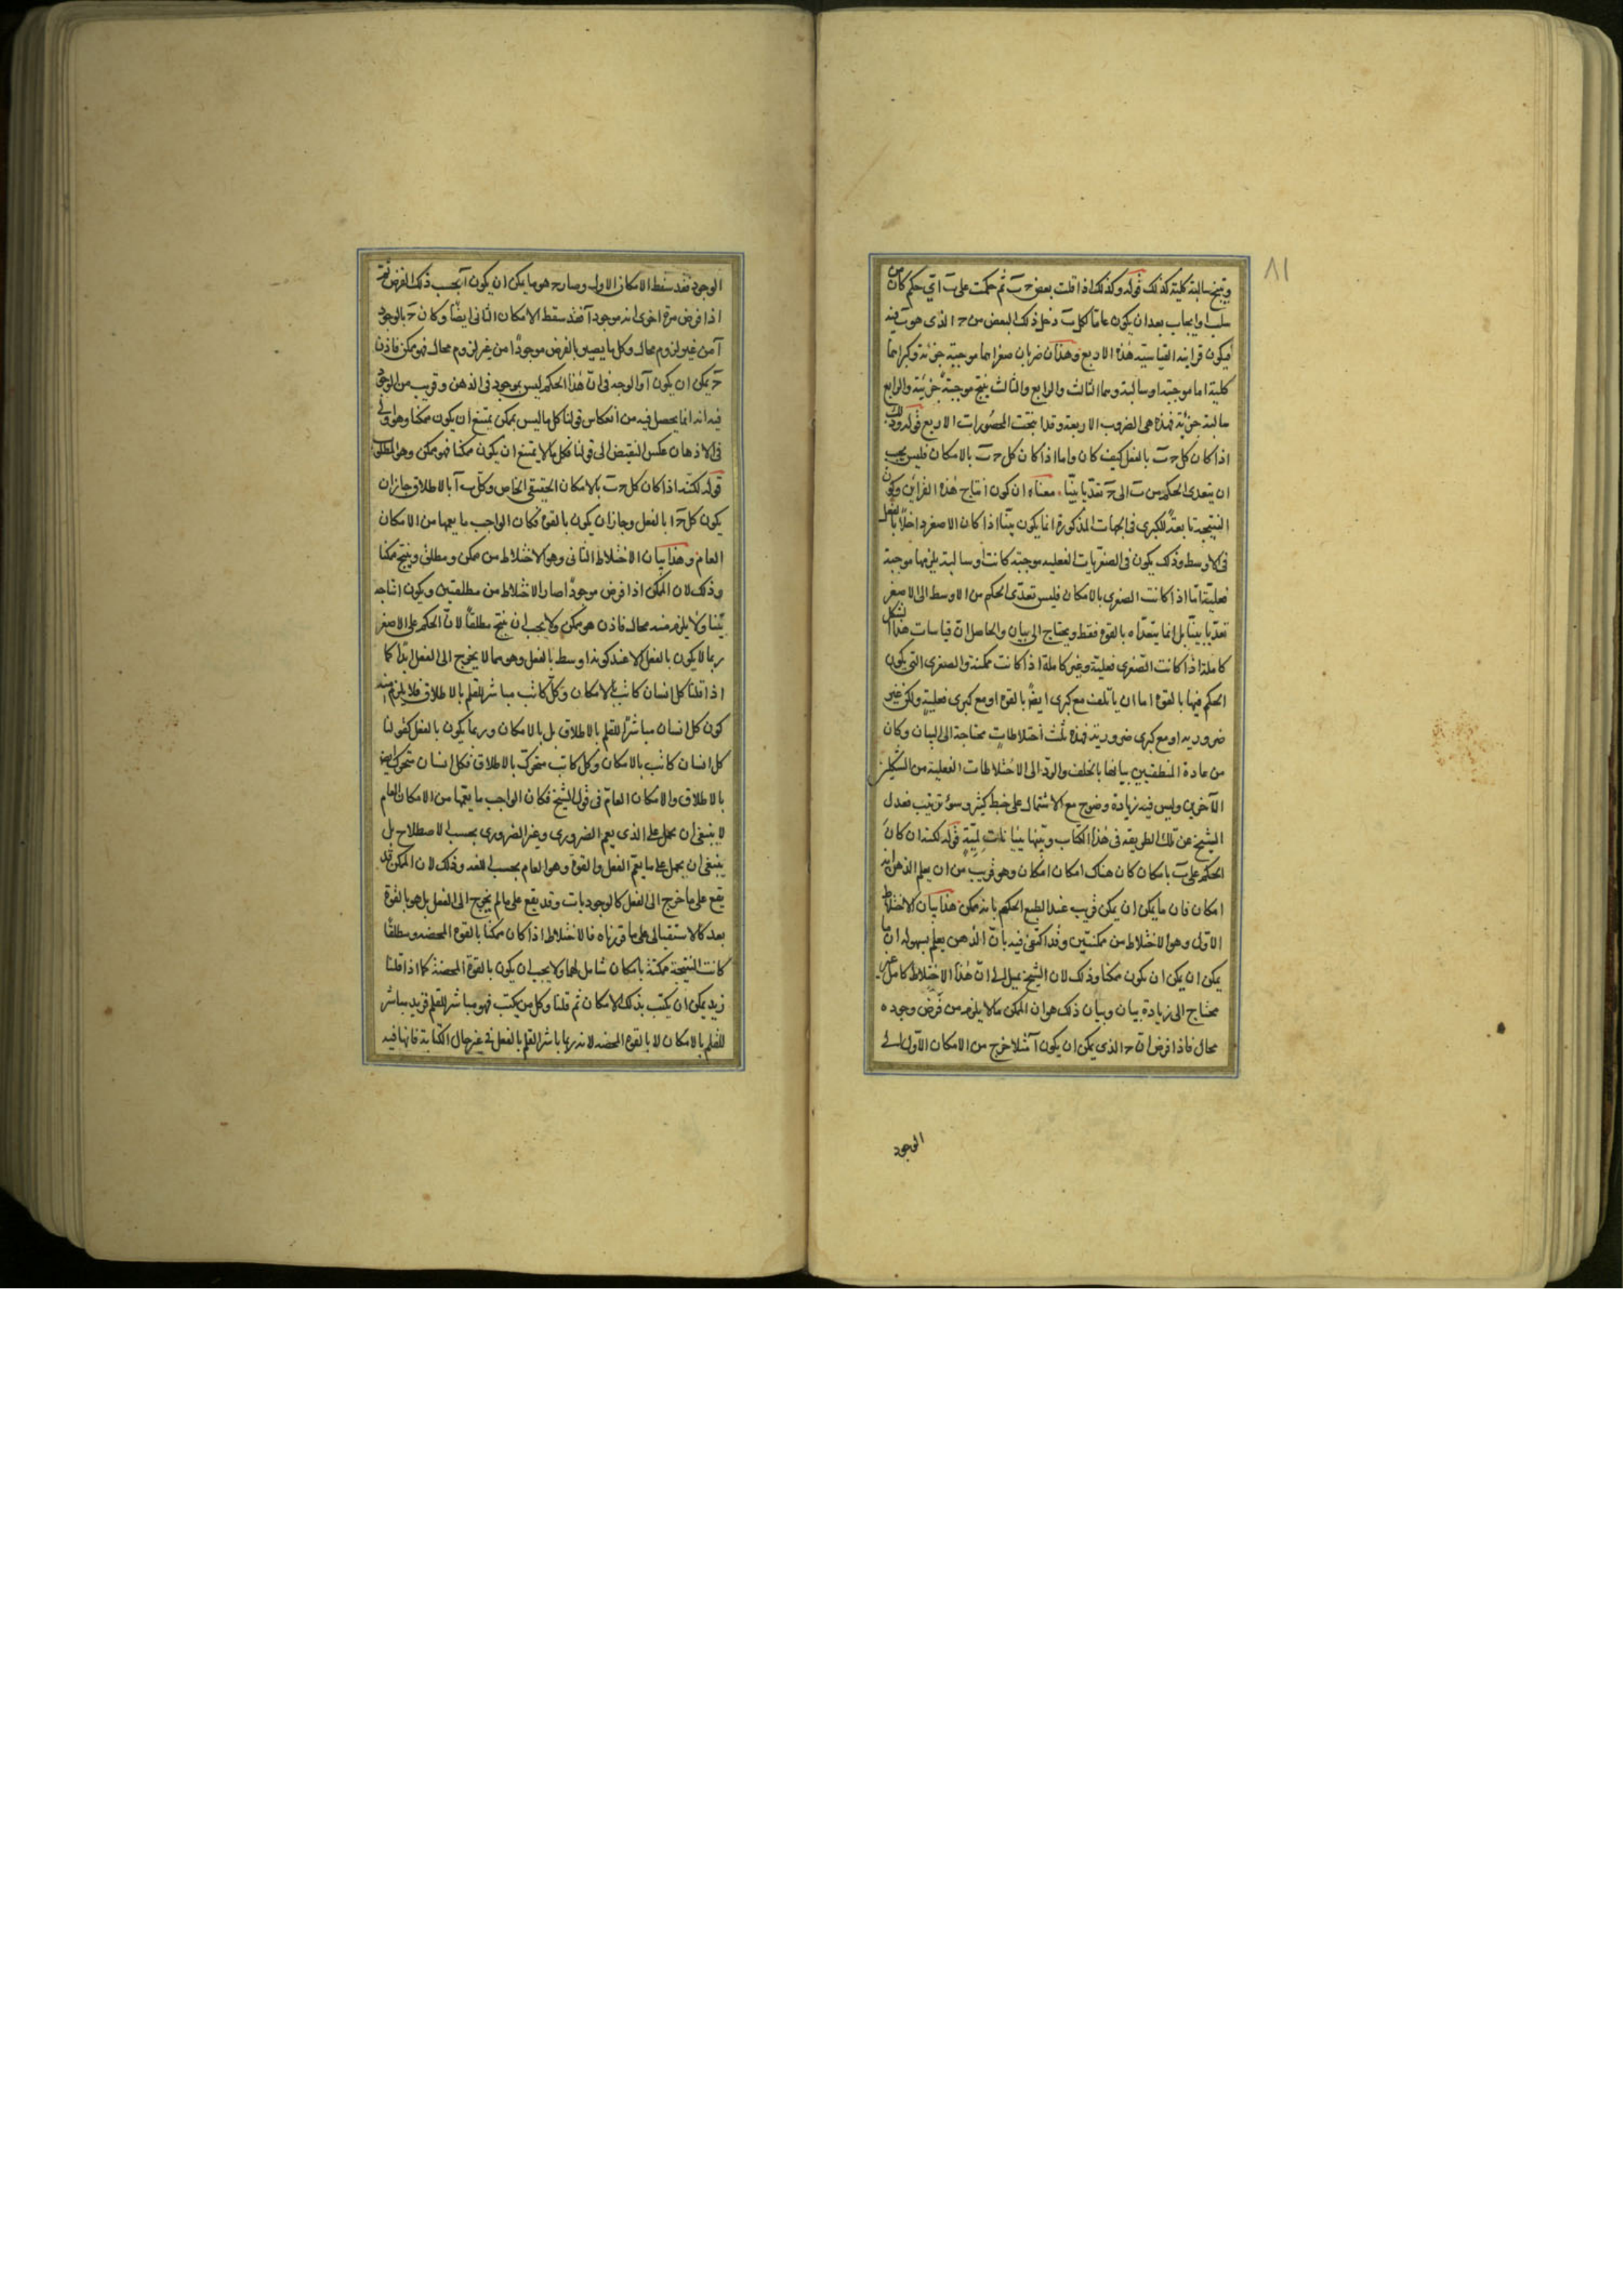 ٨١
وينتج سالبة كلية كذلك قوله وكذلك اذا قلت بعض ج ب ثم حكمت على ب اى حكم كان من
سلب او ايجاب بعد ان يكون عاما لكل ب دخل ذلك البعض من ج الذى هو ب فيه
فيكون قراينه القياسيته هذه الاربع وهذان ضربان صغراهما موجبة جزئية وكبراهما
كلية اما موجبة او سالبة وهما الثالث والرابع والثالث ينتج موجبة جزئية والرابع
سالبة جزئية فهذه هى الضروب الاربعة وقد انتجت المحصورات الاربع قوله وذلك
اذا كان كل ج ب بالفعل كيف كان واما اذا كان كل ج ب بالامكان فليس يجب
ان يتعدى الحكم من ب الى ج تعديا بينا معناه ان كون انتاج هذه القراين وكون
النتيجة تابعة للكبرى فى الجهات المذكورة انما يكون بينا اذا كان الاصغر داخلا بالفعل
فى الاوسط وذلك يكون فى الصغريات الفعلية موجبة كانت او سالبة يلزمها موجبة
فعلية اما اذا كانت الصغرى بالامكان فليس تعدى الحكم من الاوسط الى الاصغر
تعديا بينا بل انما يتعداه بالقوة فقط ويحتاج الى بيان والحاصل ان قياسات هذا الشكل
كاملة اذا كانت الصغرى فعلية وغير كاملة اذا كانت ممكنة والصغرى التى يكون
الحكم فيها بالقوة اما ان يأتلف مع كبرى ايضا بالقوة او مع كبرى فعلية ولكن غير
ضرورية او مع كبرى ضرورية فهذه ثلث اختلاطات محتاجة الى البيان وكان
من عادة المنطقيين بيانها بالخلف والرد الى الاختلاطات الفعلية من الشكلين
الآخرين وليس فيه زيادة وضوح مع الاشتمال على خبط كثير وسوء ترتيب فعدل
الشيخ عن تلك الطريقة فى هذا الكتاب وبينها بيانات لمية قوله لكنه ان كان
الحكم على ب بامكان كان هناك امكان امكان وهو قريب من ان يعلم الذهن انه
امكان فان ما يمكن ان يمكن قريب عند الطبع الحكم بانه ممكن هذا بيان الاختلاط
الاول وهو الاختلاط من ممكنتين وقد اكتفى فيه بان الذهن يعلم بسهولة ان ما
يمكن ان يمكن ان يكون ممكنا وذلك لان الشيخ يميل الى ان هذا الاختلاط كامل غير
محتاج الى زيادة بيان وبيان ذلك هو ان الممكن ما لا يلزم من فرض وجوده
محال فاذا فرض ان ج الذى يمكن ان يكون آ مثلا خرج من الامكان الاول الى
الوجود
الوجود فقد سقط الامكان الاول وصار ج هو ما يمكن ان يكون آ بحسب ذلك الفرض ثم
اذا فرض مرة اخرى انه موجود آ فقد سقط الامكان الثانى ايضا وكان ج بالوجود
آ من غير لزوم محال وكل ما يصير بالفرض موجودا من غير لزوم محال فهو ممكن فاذن
ج يمكن ان يكون آ والوجه فى ان هذا الحكم ليس بموجود فى الذهن وقريب من الوجود
فيه انه انما يحصل فيه من انعكاس قولنا كل ما ليس بممكن يمتنع ان يكون ممكنا وهو اولى
فى الاذهان عكس النقيض الى قولنا فكل ما لا يمتنع ان يكون ممكنا فهو ممكن وهو المطلوب
قوله لكنه اذا كان كل ج ب بالامكان الحقيقى الخاص وكل ب آ بالاطلاق جاز ان
يكون كل ج آ بالفعل وجاز ان يكون بالقوة فكان الواجب ما يعمها من الامكان
العام وهذا بيان الاختلاط الثانى وهو الاختلاط من ممكن ومطلق وينتج ممكنا
وذلك لان الممكن اذا فرض موجودا صار الاختلاط من مطلقتين ويكون انتاجه
بينا ولا يلزم منه محال فاذن هو ممكن ولا يجب ان ينتج مطلقا لان الحكم على الاصغر
ربما لا يكون بالفعل الا عند كونه اوسط بالفعل وهو مما لا يخرج الى الفعل ابدا كما
اذا قلنا كل انسان كاتب بالامكان وكل كاتب مباشر للقلم بالاطلاق فلا يلزم منه
كون كل انسان مباشرا للقلم بالاطلاق بل بالامكان وربما يكون بالفعل كقولنا
كل انسان كاتب بالامكان وكل كاتب متحرك بالاطلاق فكل انسان متحرك ايضا
بالاطلاق والامكان العام فى قول الشيخ فكان الواجب ما يعمها من الامكان العام
لا ينبغى ان يحمل على الذى يعم الضرورى وغير الضرورى بحسب الاصطلاح بل
ينبغى ان يحمل على ما يعم الفعل والقوة وهو العام بحسب اللغة وذلك لان الممكن قد
يقع على ما خرج الى الفعل كالوجوديات وقد يقع على ما لم يخرج الى الفعل بل هو بالقوة
بعد كالاستقبالى على ما قررناه فالاختلاط اذا كان ممكنا بالقوة المحضة ومطلقا
كانت النتيجة ممكنة بامكان شامل لهما ولا يجب ان يكون بالقوة المحضة كما اذا قلنا
زيد يمكن ان يكتب بذلك الامكان ثم قلنا وكل من يكتب فهو مباشر للقلم فزيد مباشر
للقلم بالامكان لا بالقوة المحضة لانه ربما باشر القلم بالفعل فى غير حال الكتابة فانها فيه